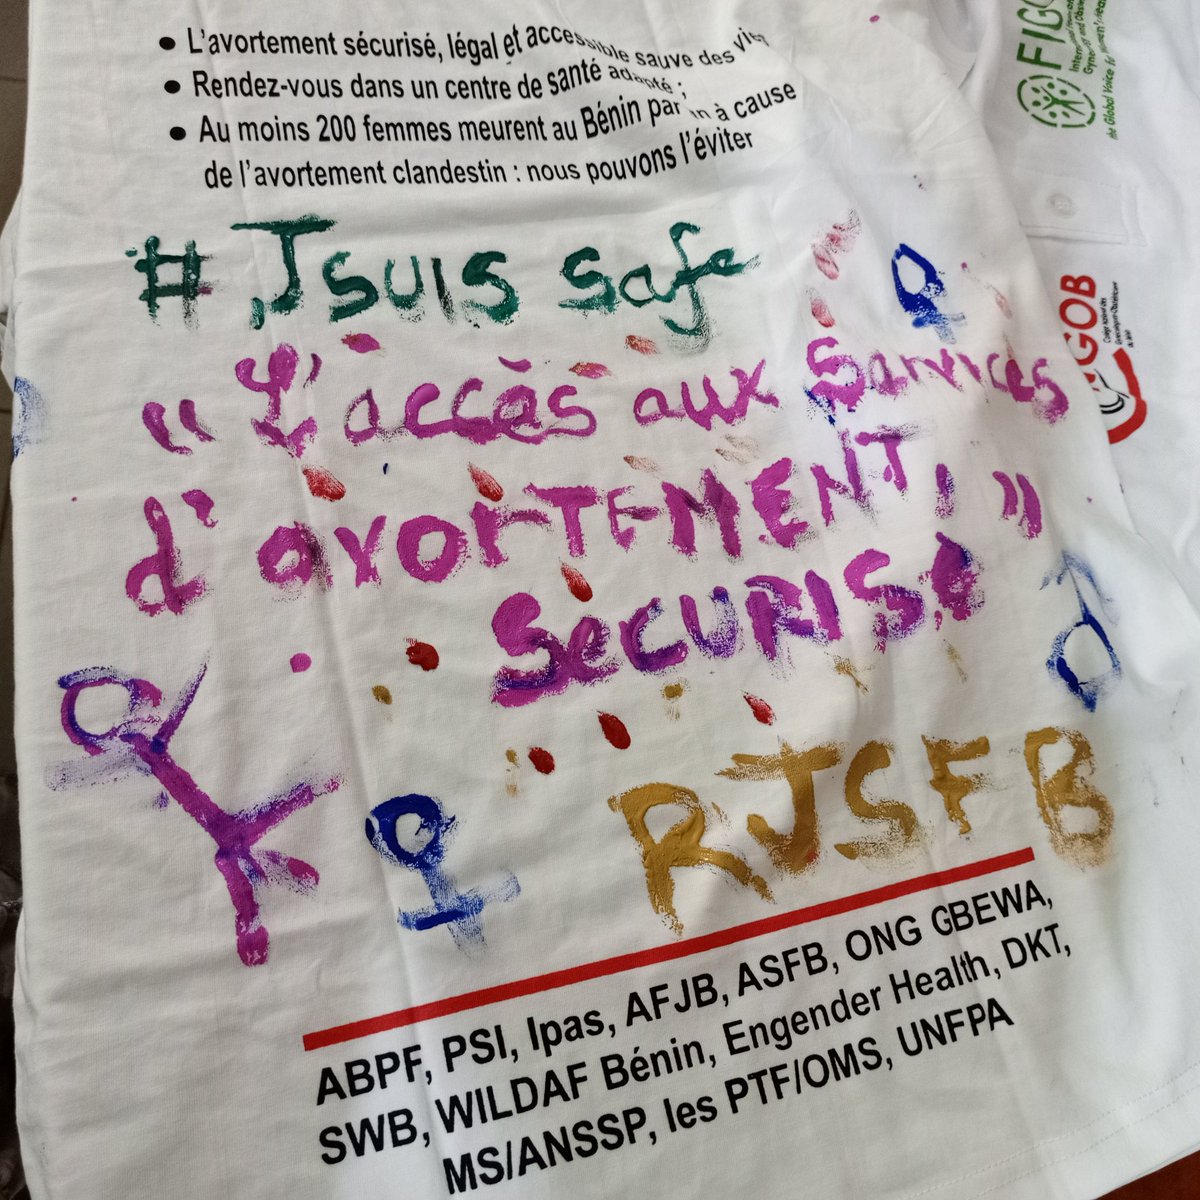 • L'avortement sécurisé, légal et accessible sauve des vies
• Rendez-vous dans un centre de santé adapté ;
• Au moins 200 femmes meurent au Bénin par an à cause
de l'avortement clandestin : nous pouvons l'éviter
# Jsuis safe
"L'accès aux Services
d'avorTEMENT, "
SeCURISé
RJSFB
ABPF, PSI, Ipas, AFJB, ASFB, ONG GBEWA,
SWB, WILDAF Bénin, Engender Health, DKT,
MS/ANSSP, les PTF/OMS, UNFPA
FIGO
the Global Voice for Women's
GOB